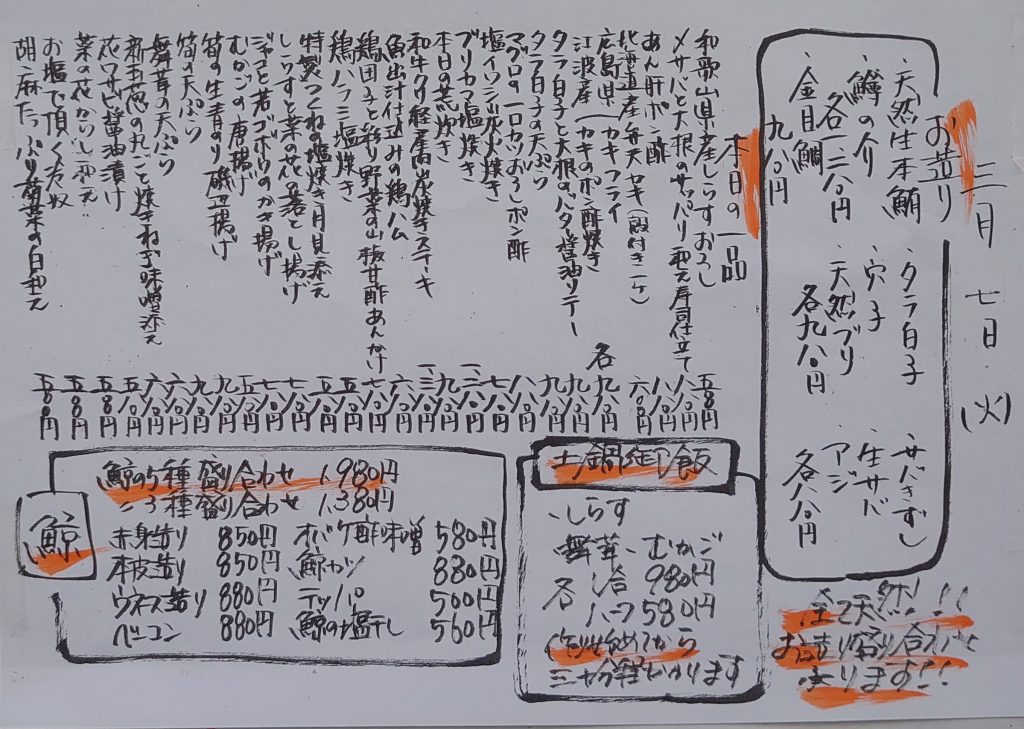 三月七日(火)
お造り
・天然生本鮪
・鰤の介
各一二八〇円
・金目鯛
九八〇円
・タラ白子
・穴子
・天然ブリ
各九八〇円
・サバきずし
・生サバ
・アジ
各八八〇円
全て天然!!
お造り盛り合わせ
承ります!!
本日の一品
和歌山県産しらすおろし 五八〇円
〆サバと大根のサッパリ和え寿司仕立て 八八〇円
あん肝ポン酢 八八〇円
北海道産弁天カキ(殻付き一ヶ) 六八〇円
広島県 カキフライ
江波産 カキのポン酢焼き 各九八〇円
タラ白子と大根のバタ醤油ソテー 九八〇円
タラ白子の天ぷら 九八〇円
マグロの一口カツおろしポン酢 八八〇円
塩イワシ炭火焼き 七八〇円
ブリカマ塩焼き
本日の荒炊き
和牛クリ 炭焼きステーキ
魚出汁仕込みの鶏ハム 六八〇円
鶏団子と彩り野菜の山椒甘酢あんかけ 七八〇円
鶏ハラミ塩焼き 五八〇円
特製つくねの塩焼き月見添え 五八〇円
しらすと菜の花の落とし揚げ 七八〇円
ジャコと若ゴボウのかき揚げ 七八〇円
むかごの唐揚げ 五八〇円
筍の生青のり磯辺揚げ 九八〇円
筍の天ぷら 九八〇円
舞茸の天ぷら 六八〇円
新玉葱の丸ごと焼きねぎ味噌添え 六八〇円
花ワサビ醤油漬け 五八〇円
菜の花からし和え 五八〇円
お塩で頂く冷奴 五八〇円
胡麻たっぷり菊菜の白和え 五八〇円
土鍋御飯
・しらす
・舞茸・むかご
各 一合 980円
ハーフ 580円
(炊き始めてから
三十分程かかります
鯨
鯨の5種盛り合わせ 1,980円
〃 3種盛り合わせ 1,380円
赤身造り 850円
本皮造り 850円
ウネス造り 880円
ベーコン 880円
オバケ酢味噌 580円
鯨カツ 880円
テッパ 500円
鯨の塩干し 560円